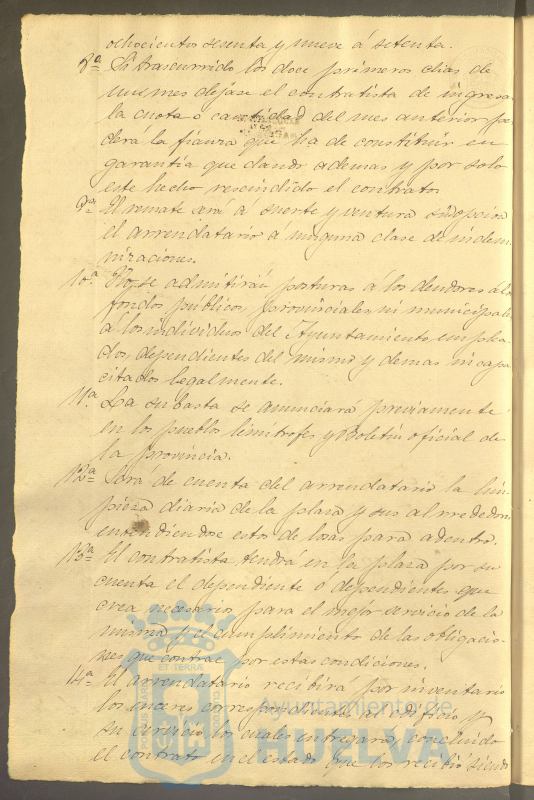 ochocientos sesenta y nueve á setenta.
8ª Si trascurrido los doce primeros dias de
un mes dejase el contratista de ingresar
la cuota o cantidad del mes anterior per
derá la fianza que ha de constituir en
garantia quedando ademas y por solo
este hecho rescindido el contrato.
9ª El remate será á suerte y ventura sin opcion
el arrendatario á ninguna clase de indem
nizaciones.
10ª No se admitirán posturas á los deudores á los
fondos publicos, provinciales, ni municipales
á los individuos del Ayuntamiento, emplea
dos, dependientes del mismo y demas incapa
citados legalmente.
11ª La subasta se anunciará previamente
en los pueblos limitrofes y Boletin oficial de
la provincia.
12ª Será de cuenta del arrendatario la lim
pieza diaria de la plaza y sus alrrededores
entendiendose estos de losas para adentro.
13ª El contratista tendrá en la plaza por su
cuenta el dependiente o dependientes que
crea necesario para el mejor servicio de la
misma y el cumplimiento de las obligacio
nes que contrae por estas condiciones.
14ª El arrendatario recibirá por inventario
los enceres correspondientes al edificio y
su servicio, los cuales entregara concluido
el contrato en el estado que los recibió siendo
PORTUS MARIS
ET TERRÆ CUSTODIA
Ayuntamiento de
HUELVA